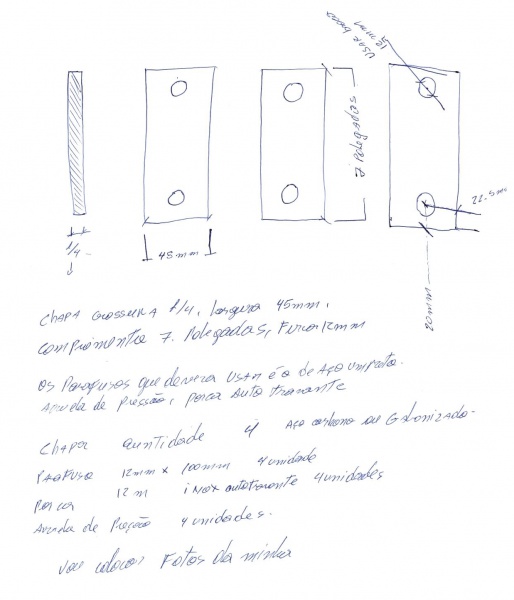 USAR broca
12 mm
7 Polegadas
22.5 mm
1/4
45 mm
20 mm
CHAPA GROSSURA 1/4, largura 45mm,
comprimento 7. Polegadas, Furo 12mm
Os Parafusos que devera usar é o de Aço
Arruela de Pressão, porca Auto travante
CHAPA quntidade 4 Aço carbono ou Galvonizado-
Parafuso 12mm x 100mm 4 unidade
Porca 12 m inox autotravante 4 unidades
Arruela de Preção 4 unidades.
vou colocar Fotos da minha